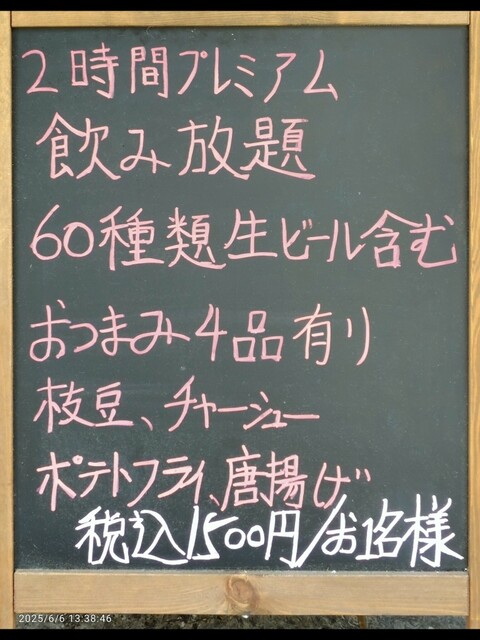 2時間プレミアム
飲み放題
60種類生ビール含む
おつまみ4品有り
枝豆、チャーシュー
ポテトフライ、唐揚げ
税込1500円/お1名様
2025/6/6 13:38:46